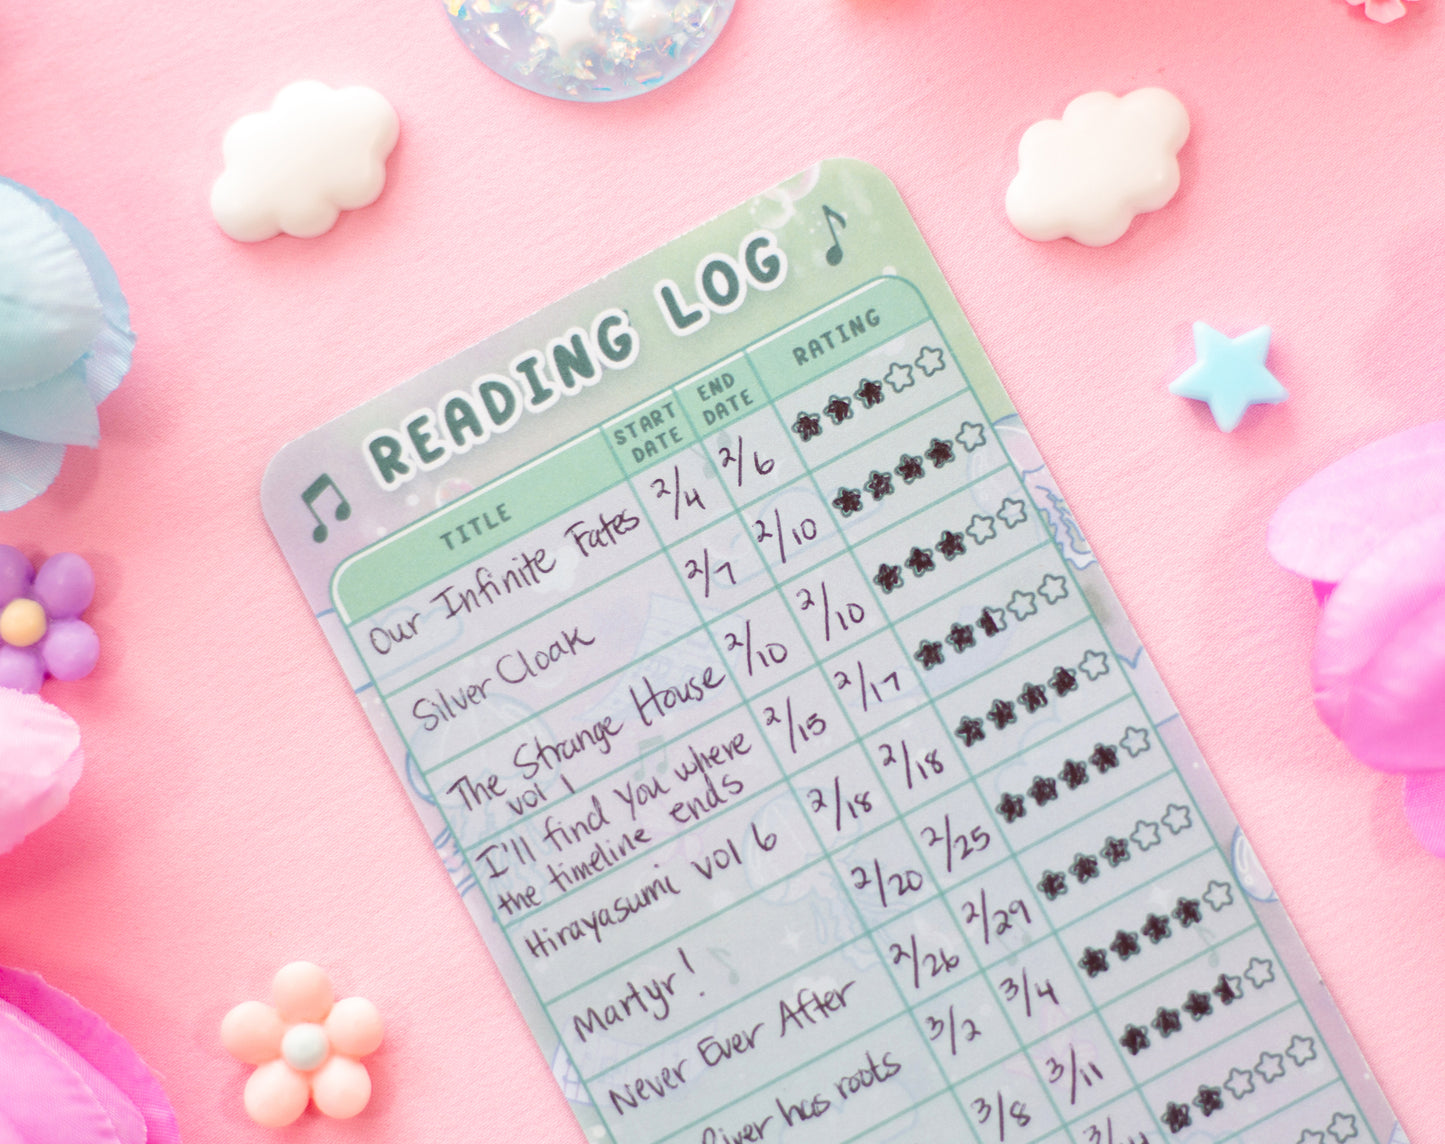 READING LOG
TITLE START DATE END DATE RATING
Our Infinite Fates 2/4 2/6
Silver Cloak 2/7 2/10
The Strange House vol 1 2/10 2/10
I'll find you where
the timeline ends 2/15 2/17
Hirayasumi vol 6 2/18 2/18
Martyr! 2/20 2/25
Never Ever After 2/26 2/29
River has roots 3/2 3/4
3/8 3/11